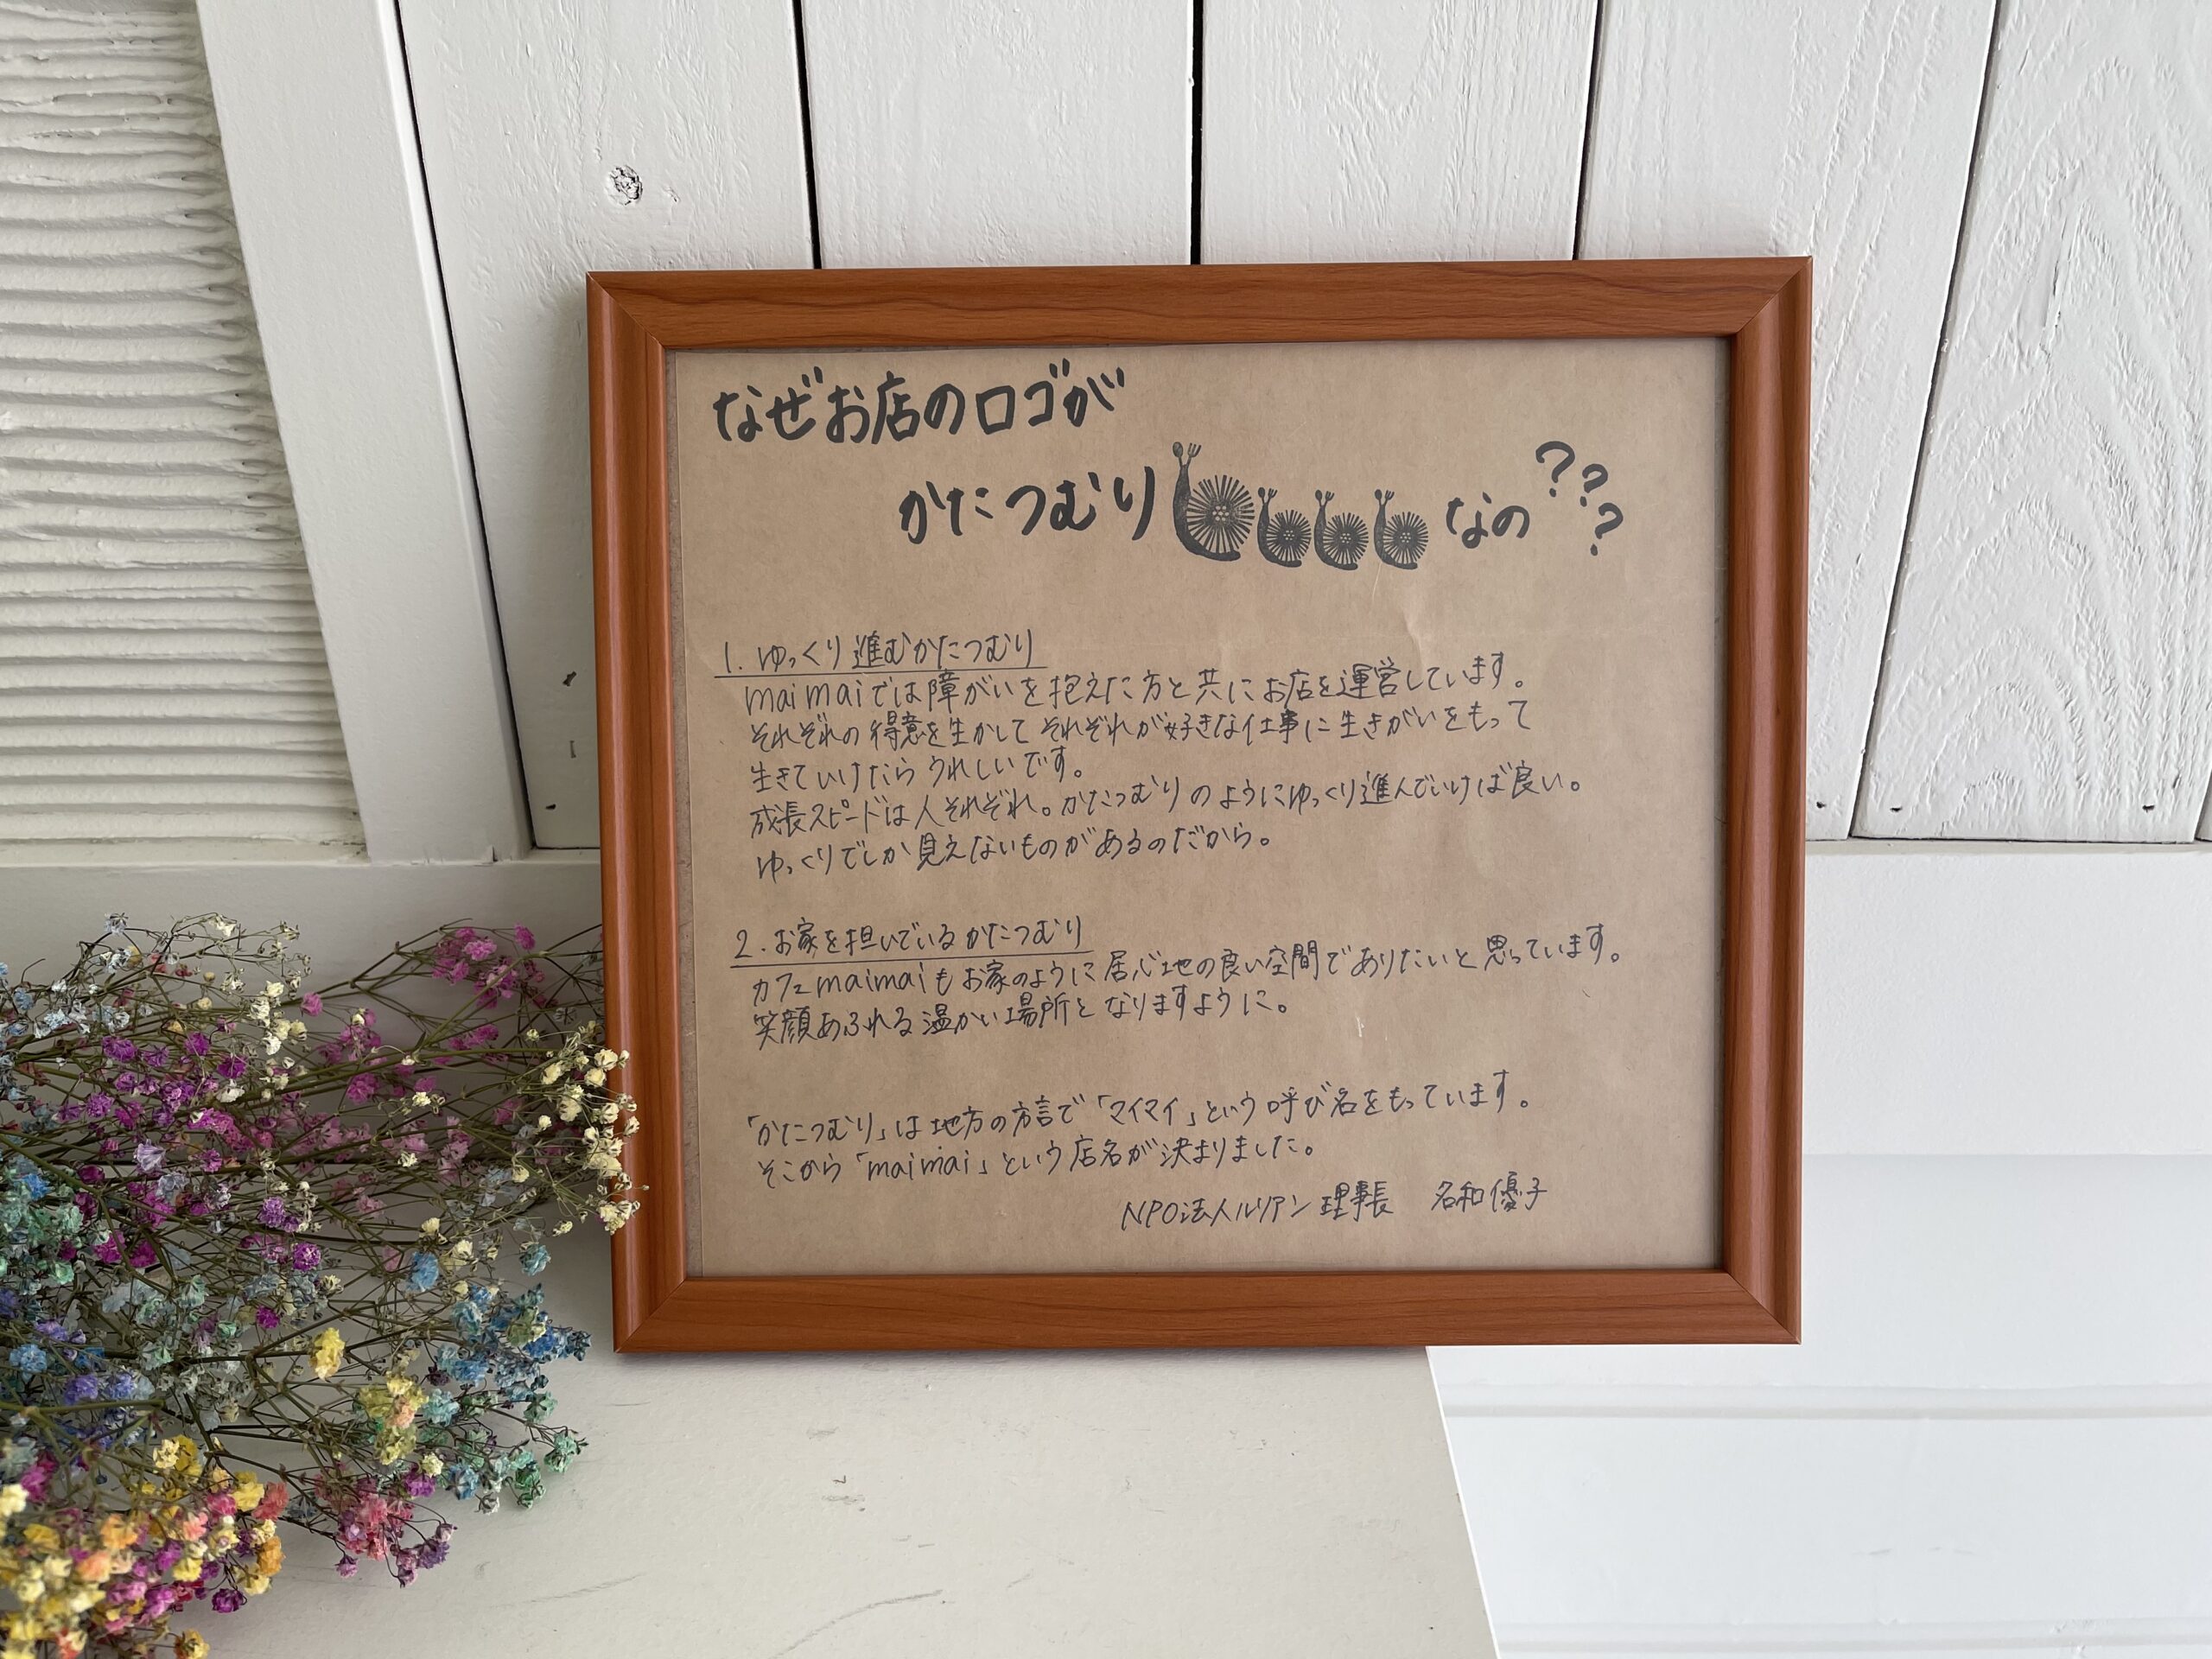 なぜお店のロゴが
かたつむりなの???
1. ゆっくり進むかたつむり
maimaiでは障がいを抱えた方と共にお店を運営しています。
それぞれの得意を生かしてそれぞれが好きな仕事に生きがいをもって
生きていけたらうれしいです。
成長スピードは人それぞれ。かたつむりのようにゆっくり進んでいけば良い。
ゆっくりでしか見えないものがあるのだから。
2. お家を担いでいるかたつむり
カフェmaimaiもお家のように居心地の良い空間でありたいと思っています。
笑顔あふれる温かい場所となりますように。
「かたつむり」は地方の方言で「マイマイ」という呼び名をもっています。
そこから「maimai」という店名が決まりました。
NPO法人ルリアン 理事長 名和優子